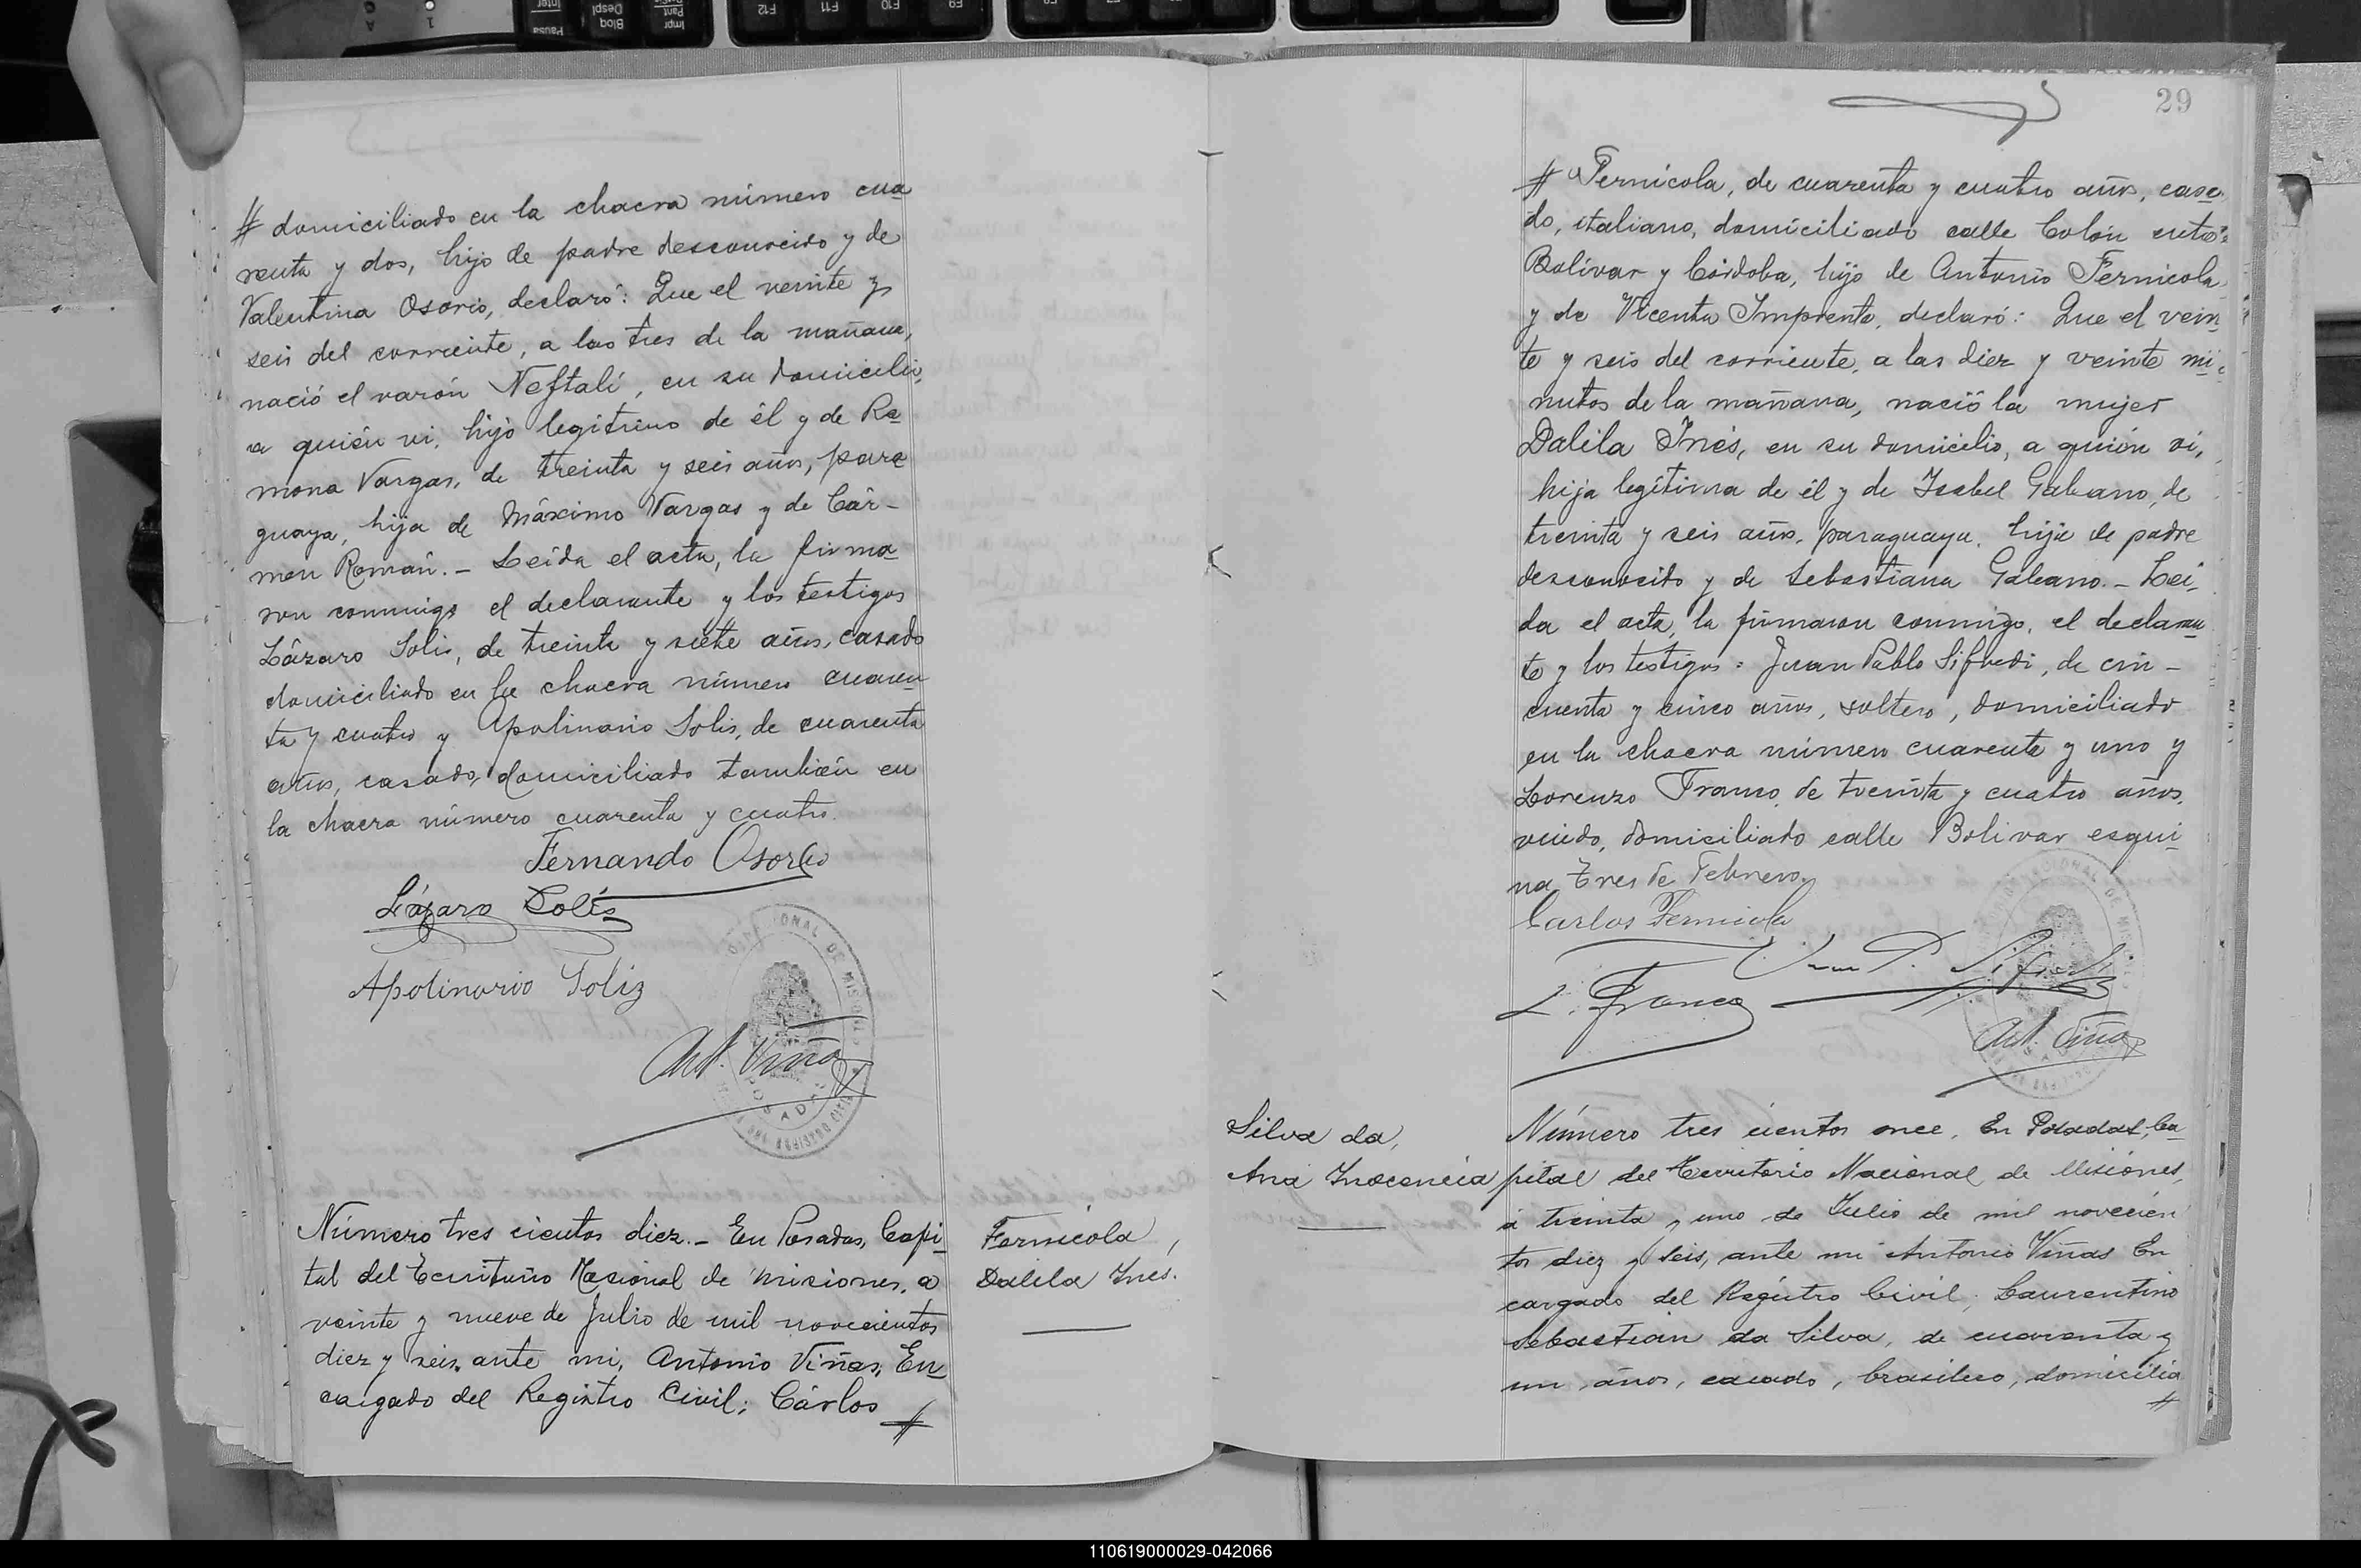 # domiciliado en la chacra número cua
renta y dos, hijo de padre desconocido y de
Valentina Osorio, declaró: Que el veinte y
seis del corriente, a las tres de la mañana,
nació el varón Neftalí, en su domicilio,
a quién vi, hijo legítimo de él y de Ra
mona Vargas, de treinta y seis años, para
guaya, hija de Máximo Vargas y de Cár-
men Román. - Leída el acta, la firma
ron conmigo el declarante y los testigos
Lázaro Solis, de treinta y siete años, casado
domiciliado en la chacra número cuaren
ta y cuatro y Apolinario Solis, de cuarenta
años, casado, domiciliado también en
la chacra número cuarenta y cuatro.
Fernando Osorio
Lázaro Solís
Apolinario Soliz
Ant. Viñas
Número tres cientos diez. - En Posadas, Capi
tal del Territorio Nacional de Misiones, a
veinte y nueve de Julio de mil novecientos
diez y seis, ante mi, Antonio Viñas, En
cargado del Registro Civil; Cárlos #
Fernicola,
Dalila Inés.
29
# Fernicola, de cuarenta y cuatro años, casa
do, italiano, domiciliado calle Colón entre
Bolívar y Córdoba, hijo de Antonio Fernicola
y de Vicenta Imprenta, declaró: Que el vein
te y seis del corriente, a las diez y veinte mi
nutos de la mañana, nació la mujer
Dalila Inés, en su domicilio, a quién vi,
hija legítima de él y de Isabel Galeano, de
treinta y seis años, paraguaya, hija de padre
desconocido y de Sebastiana Galeano. - Leí
da el acta, la firmaron conmigo, el declaran
te y los testigos: Juan Pablo Sifredi, de cin-
cuenta y cinco años, soltero, domiciliado
en la chacra número cuarenta y uno y
Lorenzo Franco, de treinta y cuatro años,
viudo, domiciliado calle Bolivar esqui
na Tres de Febrero.
Carlos Fernicola
Juan P. Sifredi
L. Franco
Ant. Viñas
Silva da,
Ana Inocencia
Número tres cientos once. En Posadas, Ca
pital del Territorio Nacional de Misiones,
á treinta y uno de Julio de mil novecien
tos diez y seis, ante mi Antonio Viñas En
cargado del Registro Civil; Laurentino
Sebastián da Silva, de cuarenta y
un años, casado, brasilero, domicilia
#
110619000029-042066